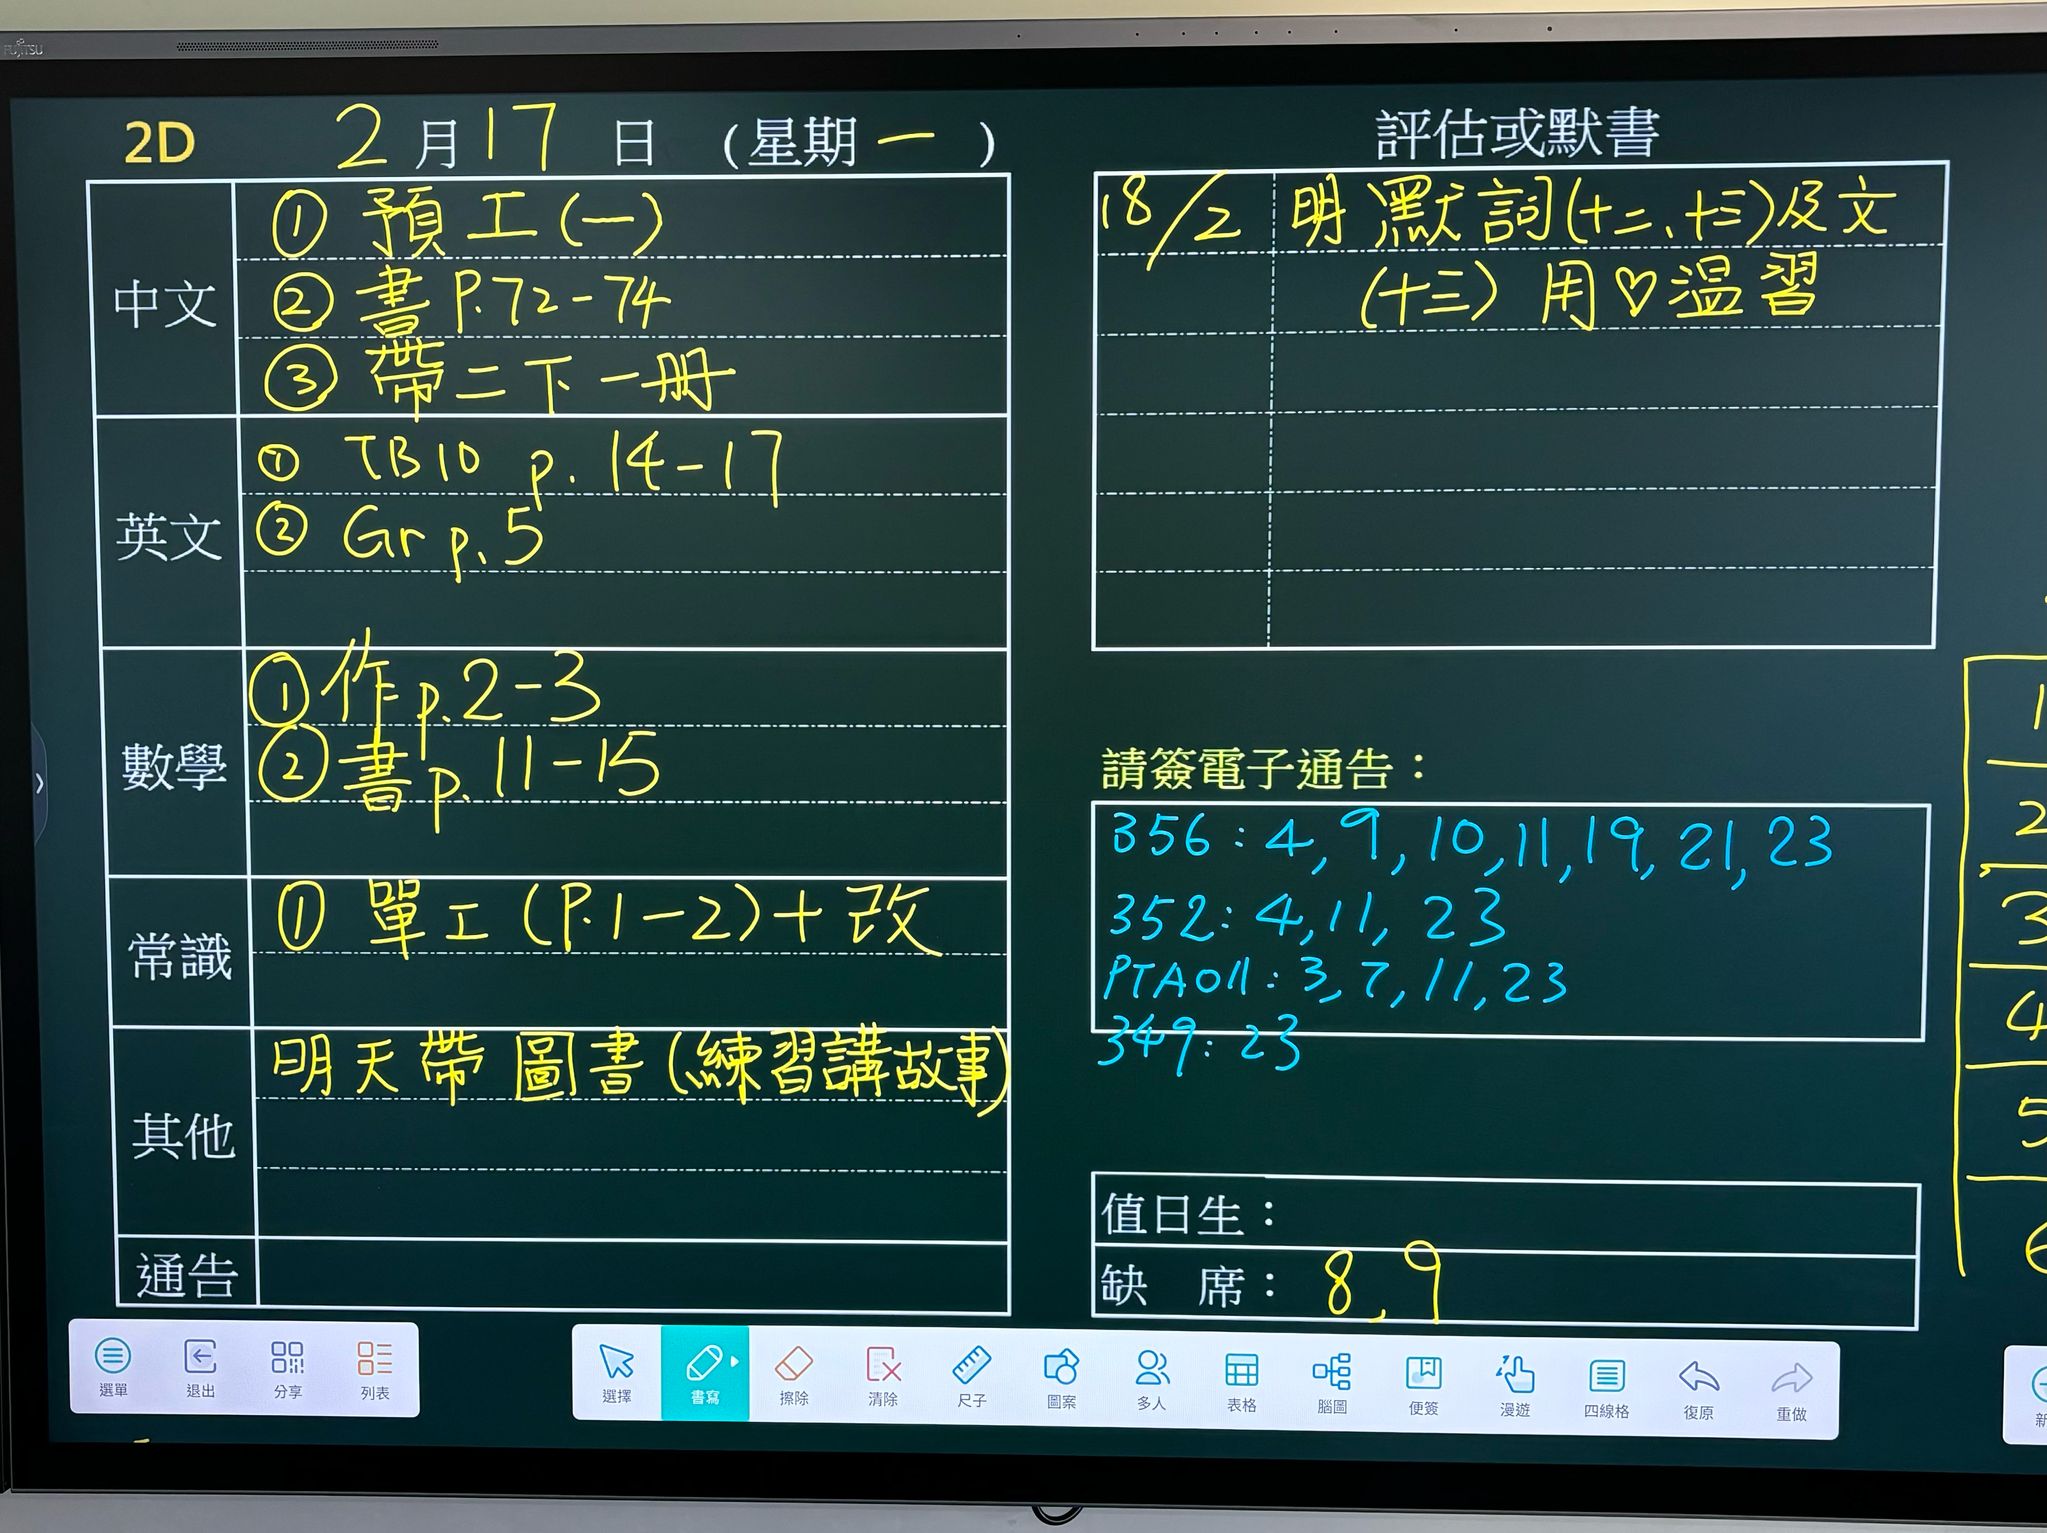 FUJITSU
2D 2月17日 (星期一)
中文
① 預工(一)
② 書P.72-74
③ 帶二下一冊
英文
① TB10 p. 14-17
② Gr p. 5
數學
① 作p.2-3
② 書p.11-15
常識
① 單工(P.1-2)+改
其他
明天帶圖書(練習講故事)
通告
評估或默書
18/2 明默詞(十二、十三)及文
(十三) 用♡溫習
請簽電子通告：
356: 4, 9, 10, 11, 19, 21, 23
352: 4, 11, 23
PTA011: 3, 7, 11, 23
349: 23
值日生：
缺席： 8, 9
1
2
3
4
5
選單 退出 分享 列表
選擇 書寫 擦除 清除 尺子 圖案 多人 表格 腦圖 便簽 漫遊 四線格 復原 重做